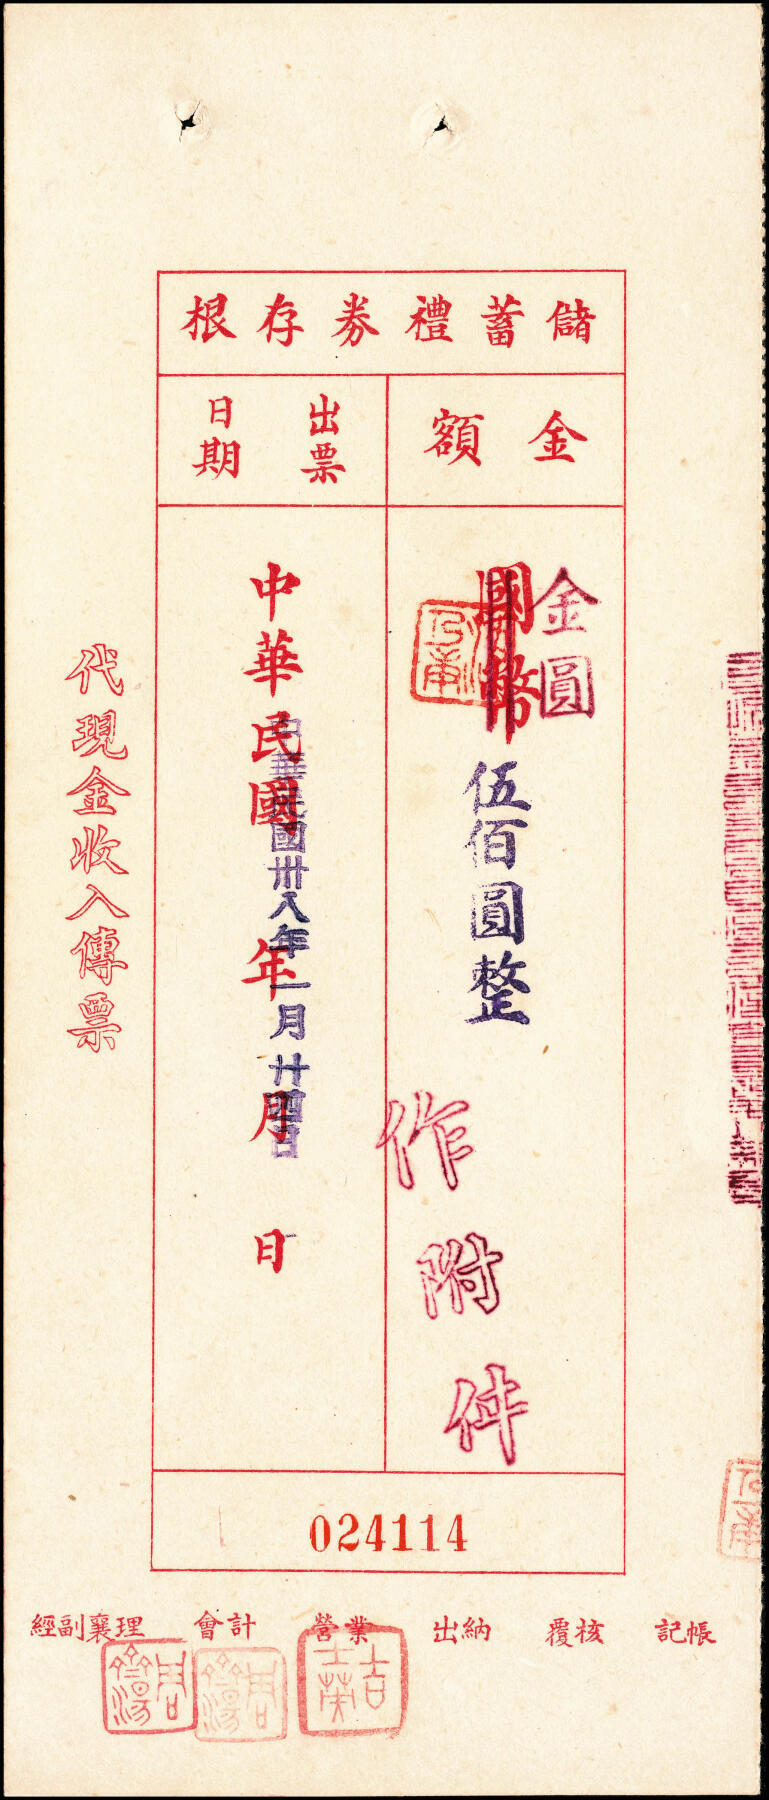 儲蓄禮券存根
金額
出票
日期
金圓
國幣
伍佰圓整
作附件
中華民國 年 月 日
中華民國卅八年一月廿四日
代現金收入傳票
024114
經副襄理 會計 營業 出納 覆核 記帳